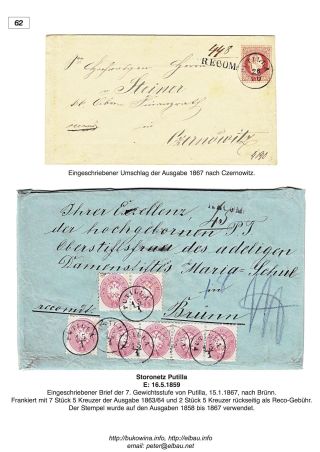 62
448
RECOM.
Steiner
Czernowitz
Eingeschriebener Umschlag der Ausgabe 1867 nach Czernowitz.
RECOM.
Ihrer Excellenz
der hochgebornen
Oberstiftsfrau des adeligen
Damenstiftes Maria-Schul
recomdt.
Brünn
Storonetz Putilla
E: 16.5.1859
Eingeschriebener Brief der 7. Gewichtsstufe von Putilla, 15.1.1867, nach Brünn.
Frankiert mit 7 Stück 5 Kreuzer der Ausgabe 1863/64 und 2 Stück 5 Kreuzer rückseitig als Reco-Gebühr.
Der Stempel wurde auf den Ausgaben 1858 bis 1867 verwendet.
http://bukowina.info, http://eibau.info
email: peter@eibau.net